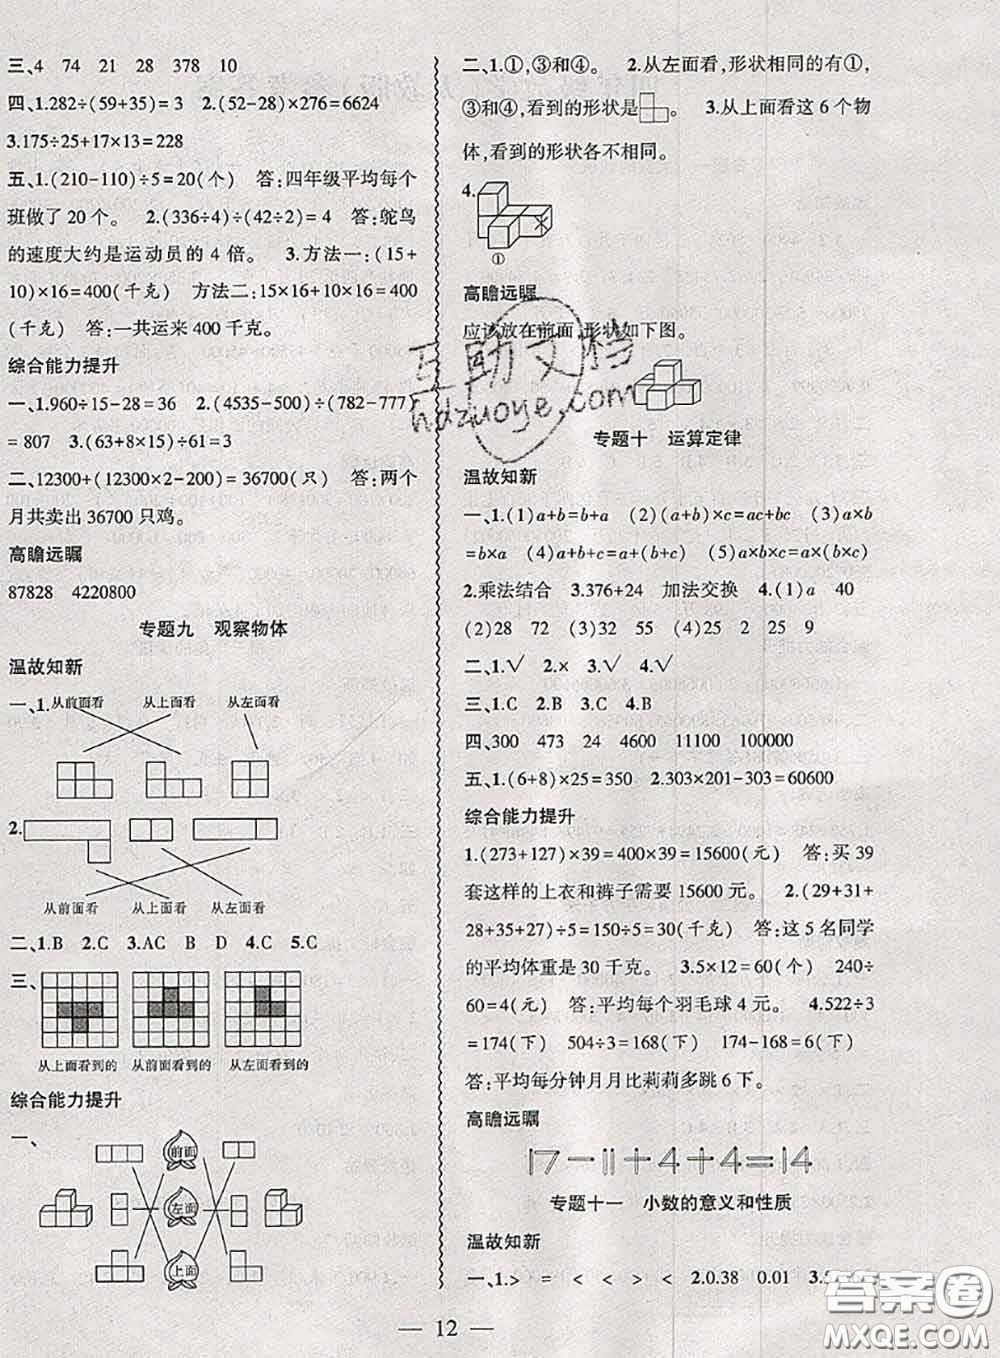 三、4 74 21 28 378 10
四、1.282÷(59+35)=3 2.(52-28)×276=6624
3.175÷25+17×13=228
五、1.(210-110)÷5=20(个) 答:四年级平均每个
班做了 20 个。 2.(336÷4)÷(42÷2)=4 答:鸵鸟
的速度大约是运动员的 4 倍。 3.方法一:(15+
10)×16=400(千克) 方法二:15×16+10×16=400
(千克) 答:一共运来 400 千克。
综合能力提升
一、1.960÷15-28=36 2.(4535-500)÷(782-777)
=807 3.(63+8×15)÷61=3
二、12300+(12300×2-200)=36700(只) 答:两个
月共卖出 36700 只鸡。
高瞻远瞩
87828 4220800
专题九 观察物体
温故知新
一、1.从前面看 从上面看 从左面看
2.
从前面看 从上面看 从左面看
二、1.B 2.C 3.AC B D 4.C 5.C
三、
从上面看到的 从前面看到的 从左面看到的
综合能力提升
一、
前面
左面
上面
二、1.①,③和④。 2.从左面看,形状相同的有①,
③和④,看到的形状是 。 3.从上面看这 6 个物
体,看到的形状各不相同。
4.
①
高瞻远瞩
应该放在前面,形状如下图。
专题十 运算定律
温故知新
一、1.(1)a+b=b+a (2)(a+b)×c=ac+bc (3)a×b
=b×a (4)a+b+c=a+(b+c) (5)a×b×c=a×(b×c)
2.乘法结合 3.376+24 加法交换 4.(1)a 40
(2)28 72 (3)55 15 (4)25 2 25 9
二、1.√ 2.× 3.√ 4.√
三、1.C 2.B 3.C 4.B
四、300 473 24 4600 11100 100000
五、1.(6+8)×25=350 2.303×201-303=60600
综合能力提升
1.(273+127)×39=400×39=15600(元) 答:买 39
套这样的上衣和裤子需要 15600 元。 2.(29+31+
28+35+27)÷5=150÷5=30(千克) 答:这 5 名同学
的平均体重是 30 千克。 3.5×12=60(个) 240÷
60=4(元) 答:平均每个羽毛球 4 元。 4.522÷3
=174(下) 504÷3=168(下) 174-168=6(下)
答:平均每分钟月月比莉莉多跳 6 下。
高瞻远瞩
17-11+4+4=14
专题十一 小数的意义和性质
温故知新
一、1.> = < < > < 2.0.38 0.01
互助文档
hdzuoye.com
答案圈
MXQE.COM
12